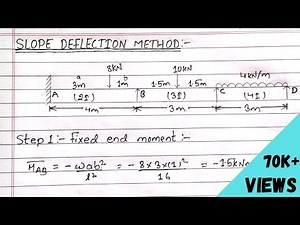 SLOPE DEFLECTION METHOD:-
8kN 10kN 4kN/m
a b
3m 1m 1.5m 1.5m
A (2I) B (3I) C (4I) D
4m 3m 3m
Step 1:- Fixed end moment:-
M̅AB = -wab²/l² = -8×3×(1)²/16 = -1.5kN
70K+
VIEWS